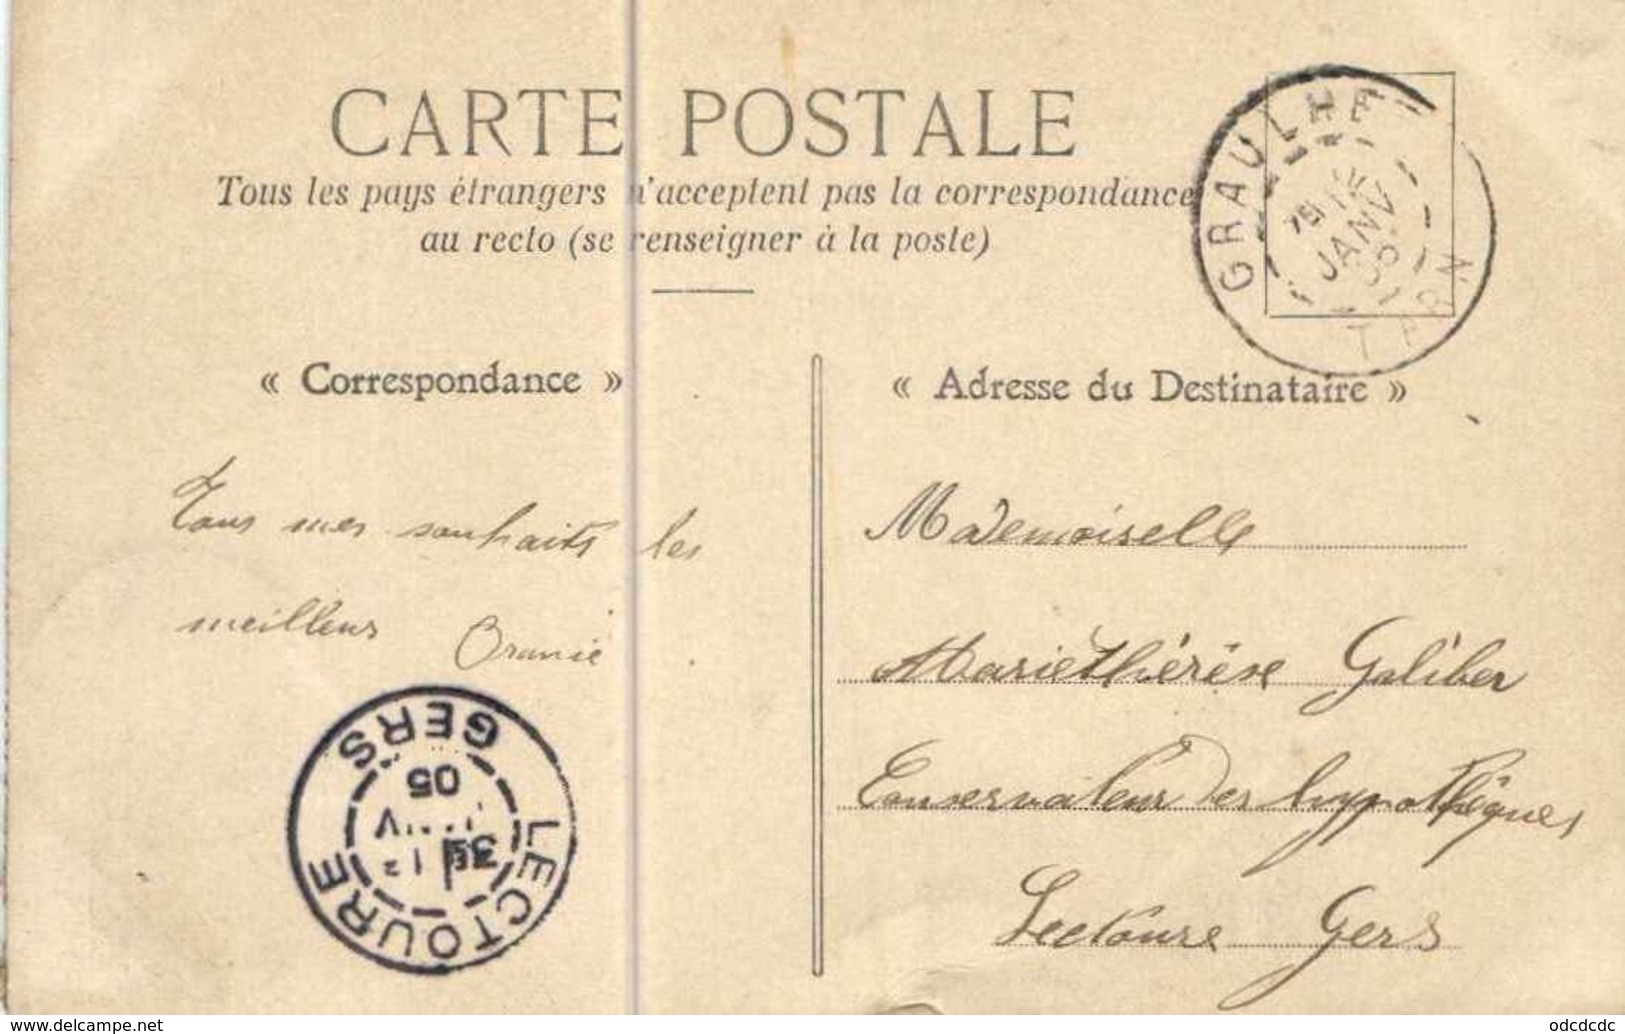 CARTE POSTALE
Tous les pays étrangers n'acceptent pas la correspondance
au recto (se renseigner à la poste)
GRAULHET
JANV
05
TARN
« Correspondance »
« Adresse du Destinataire »
Tous mes souhaits les
meilleurs
Oranie
Mademoiselle
Marie thérèse Galiber
Conservateur des hypothèques
Lectoure Gers
LECTOURE
GERS
05
www.delcampe.net
odcdcdc